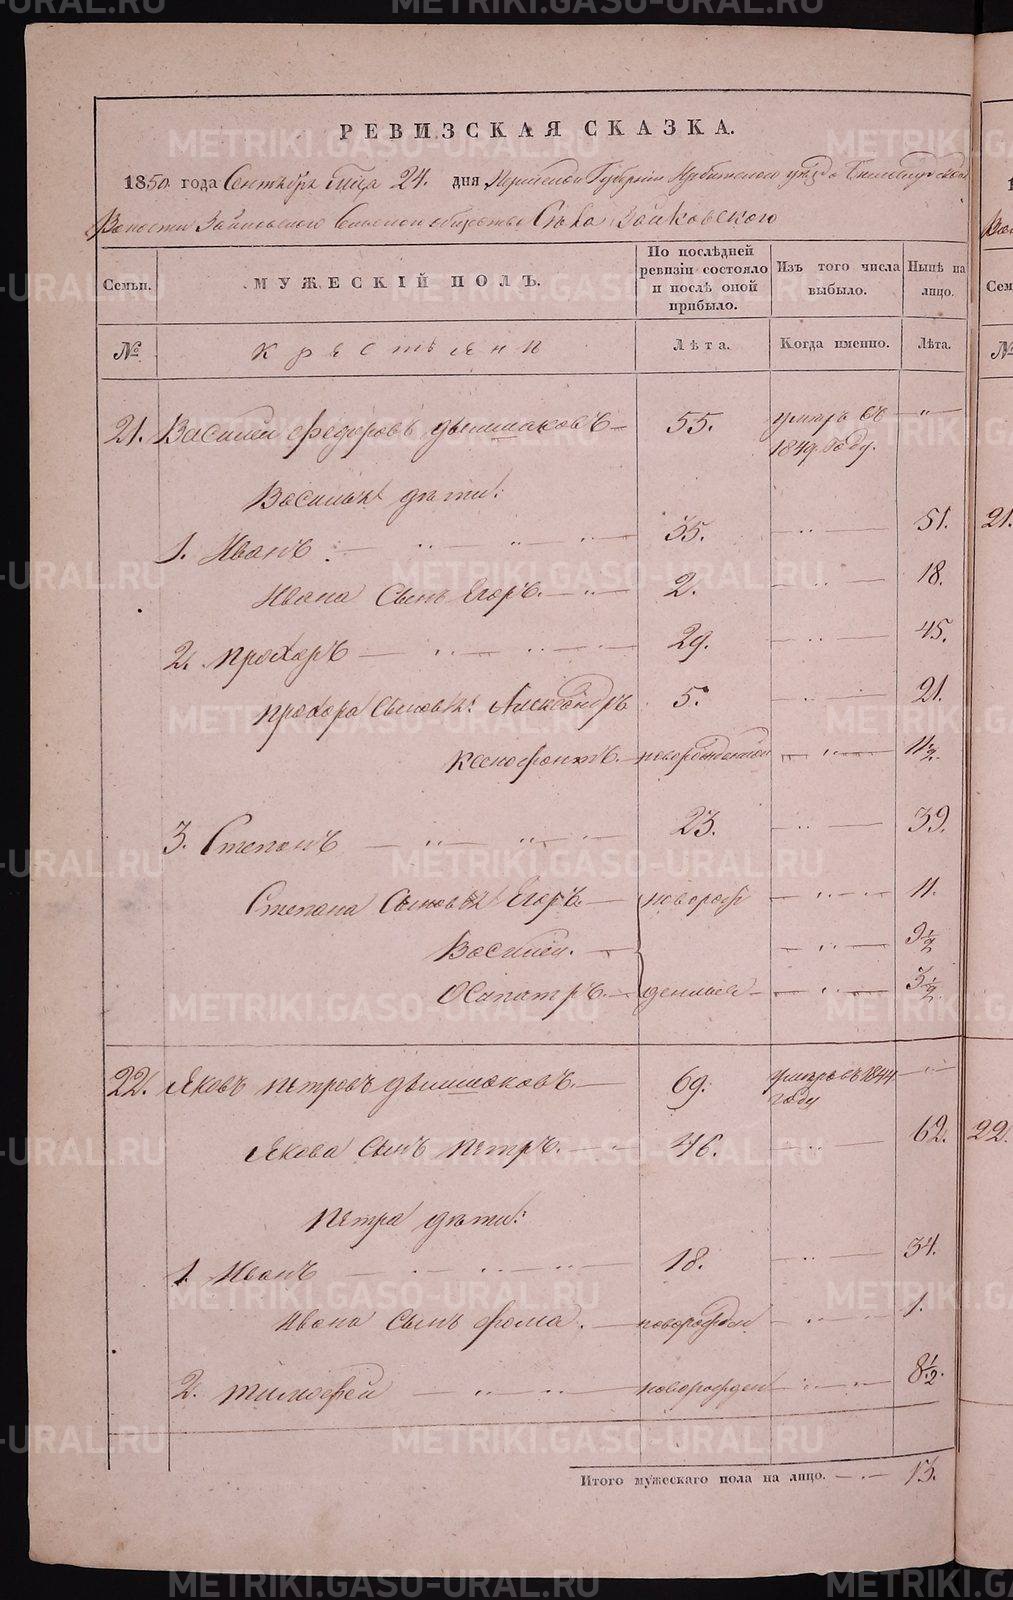 РЕВИЗСКАЯ СКАЗКА.
1850 года Сентября м͠ца 24. дня Пермской Губернии Ирбитского уезда
Волости Зайковского Сельского общества Села Зайковского
Семьи. МУЖЕСКІЙ ПОЛЪ. По послѣдней ревизіи состояло и послѣ оной прибыло. Изъ того числа выбыло. Нынѣ на лицо.
№ Крестьяни Лѣта. Когда именно. Лѣта.
21. Василей Федоровъ Дымшаковъ 55. умеръ въ 1849. году.
Василья дѣти:
1. Иванъ 35. 51.
Ивана Сынъ Егоръ 2. 18.
2. Прохоръ 29. 45.
Прохора Сыновья: Александръ 5. 21.
Ксенофонтъ новорожденной 11½.
3. Степанъ 23. 39.
Степана Сыновья: Егоръ новорож 11.
Василей. 9½
Осипатръ денные 3½.
22. Яковъ Петровъ Дымшаковъ 69. умеръ въ 1844 году
Якова Сынъ Петръ 46. 62.
Петра дѣти:
1. Иванъ 18. 34.
Ивана Сынъ Фома. новорожден 1.
2. Тимофей новорожден 8½.
Итого мужескаго пола на лицо. 13.
21.
22.
№
METRIKI.GASO-URAL.RU